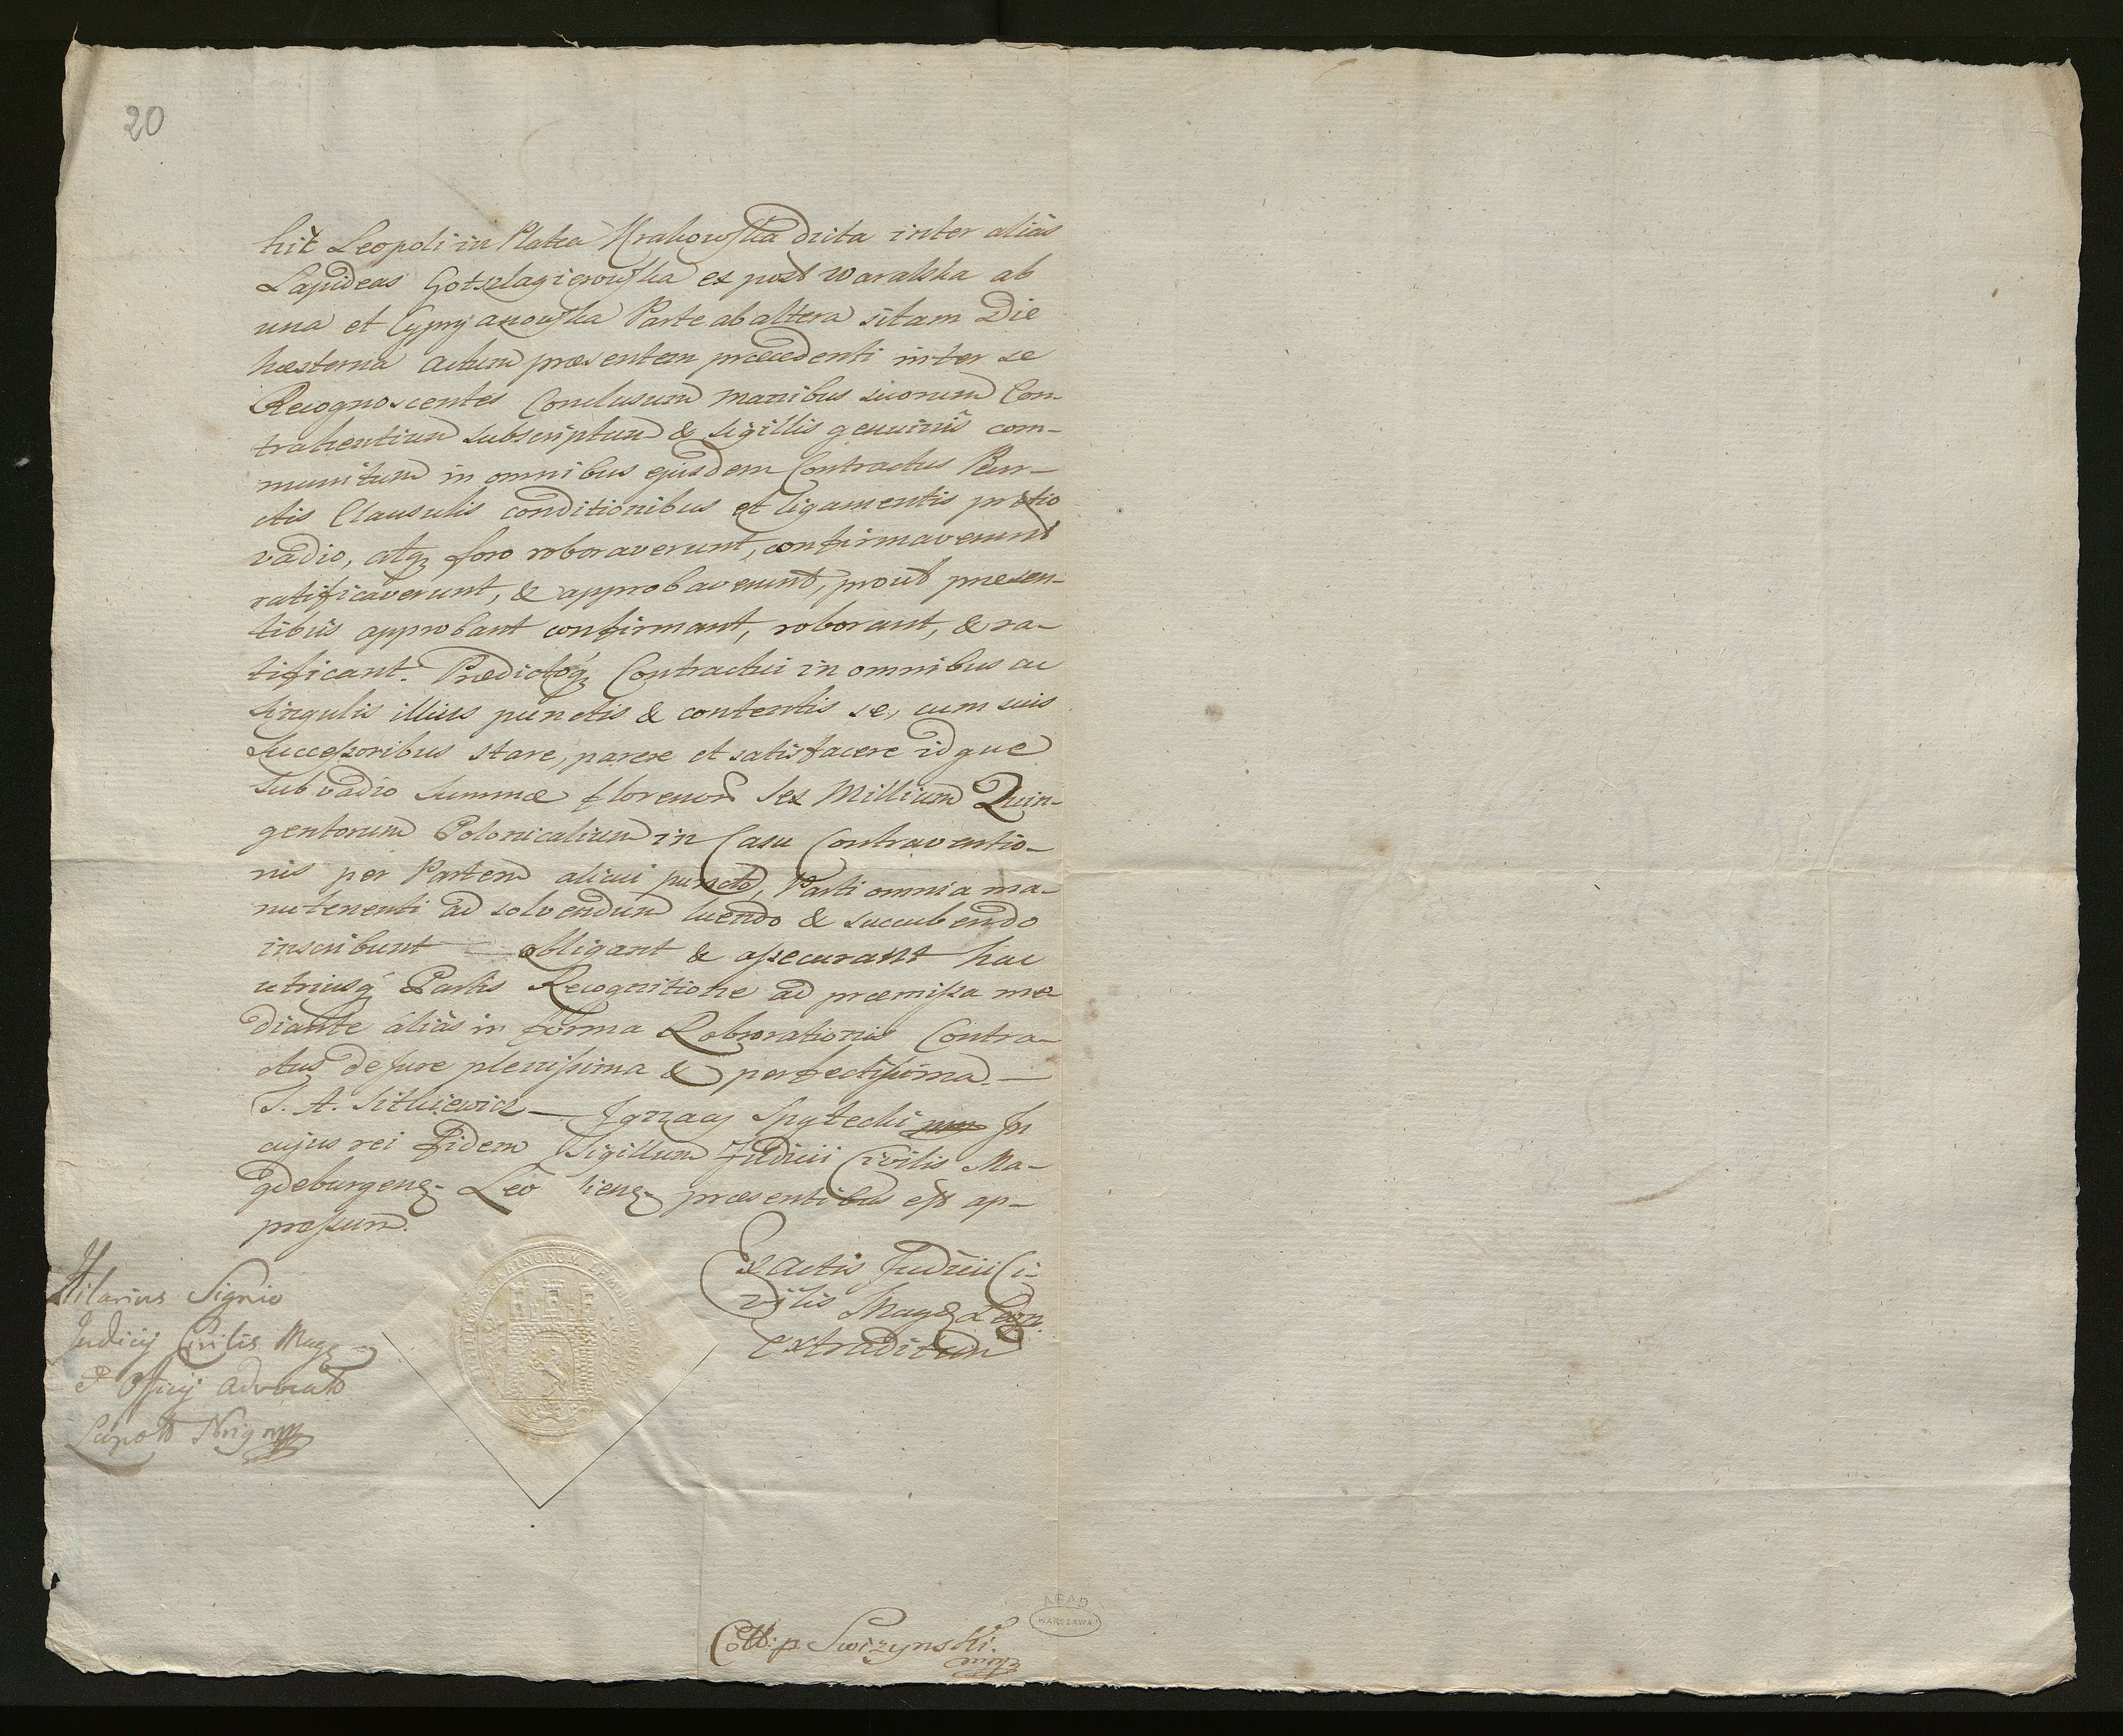 20
hic Leopoli in Platea Krakowska dicta inter alias
Lapideas Gotszlagierowska ex post Waralska ab
una et Cypryanowska Parte ab altera sitam Die
hesterna actum præsentem præcedenti inter se
Recognoscentes Conclusum manibus suorum Con-
trahentium subscriptum & sigillis genuinis com-
munitum in omnibus ejusdem Contractus Pun-
ctis Clausulis conditionibus et ligamentis prætio
vadio, atq foro roboraverunt, confirmaverunt
ratificaverunt, & approbaverunt, prout præsen-
tibus approbant confirmant, roborant, & ra-
tificant. Prædictoq Contractui in omnibus ac
singulis illius punctis & contentis se, cum suis
Successoribus stare, parere et satisfacere idque
sub vadio summæ floreno Sex Millium Quin-
gentorum Polonicalium in Casu Contraventio-
nis per Partem alicui puncto, Parti omnia ma-
nutenenti ad solvendum luendo & succubendo
inscribunt obligant & assecurant hac
utriusq Partis Recognitione ad præmissa me
diante alias in forma Roborationis Contra-
ctus de jure plenissima & perfectissima. —
J. A. Sitkiewicz — Ignacy Spytecki mp In
cujus rei fidem Sigillum Judicii Civilis Ma-
gdeburgens Leo liens præsentibus est ap-
pressum.
Ex Actis Judicii Ci-
vilis Magd Leop.
extraditum
Hilarius Signio
Judicij Civilis Mag
et Officij Advocat
SCABINORUM
Coll: p Swizynski
mp
AGAD
WARSZAWA